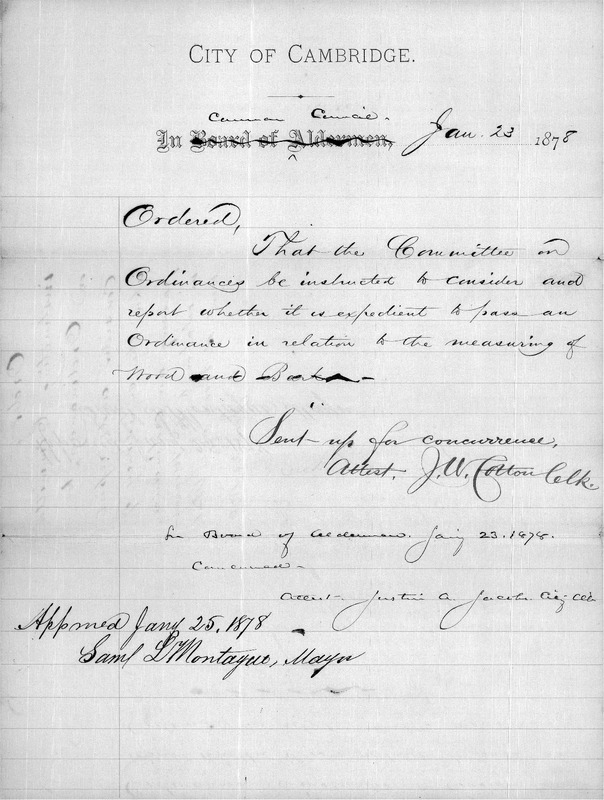 CITY OF CAMBRIDGE.
Common Council.
In Board of Aldermen, Jan. 23 1878
Ordered,
That the Committee on
Ordinances be instructed to consider and
report whether it is expedient to pass an
Ordinance in relation to the measuring of
Wood and Bark
Sent up for concurrence,
Attest. J.W. Cotton Clk.
In Board of Aldermen. Jany 23. 1878.
Concurred
Attest. Justin A. Jacobs. City Clk
Approved Jany 25, 1878
Saml L Montague, Mayor